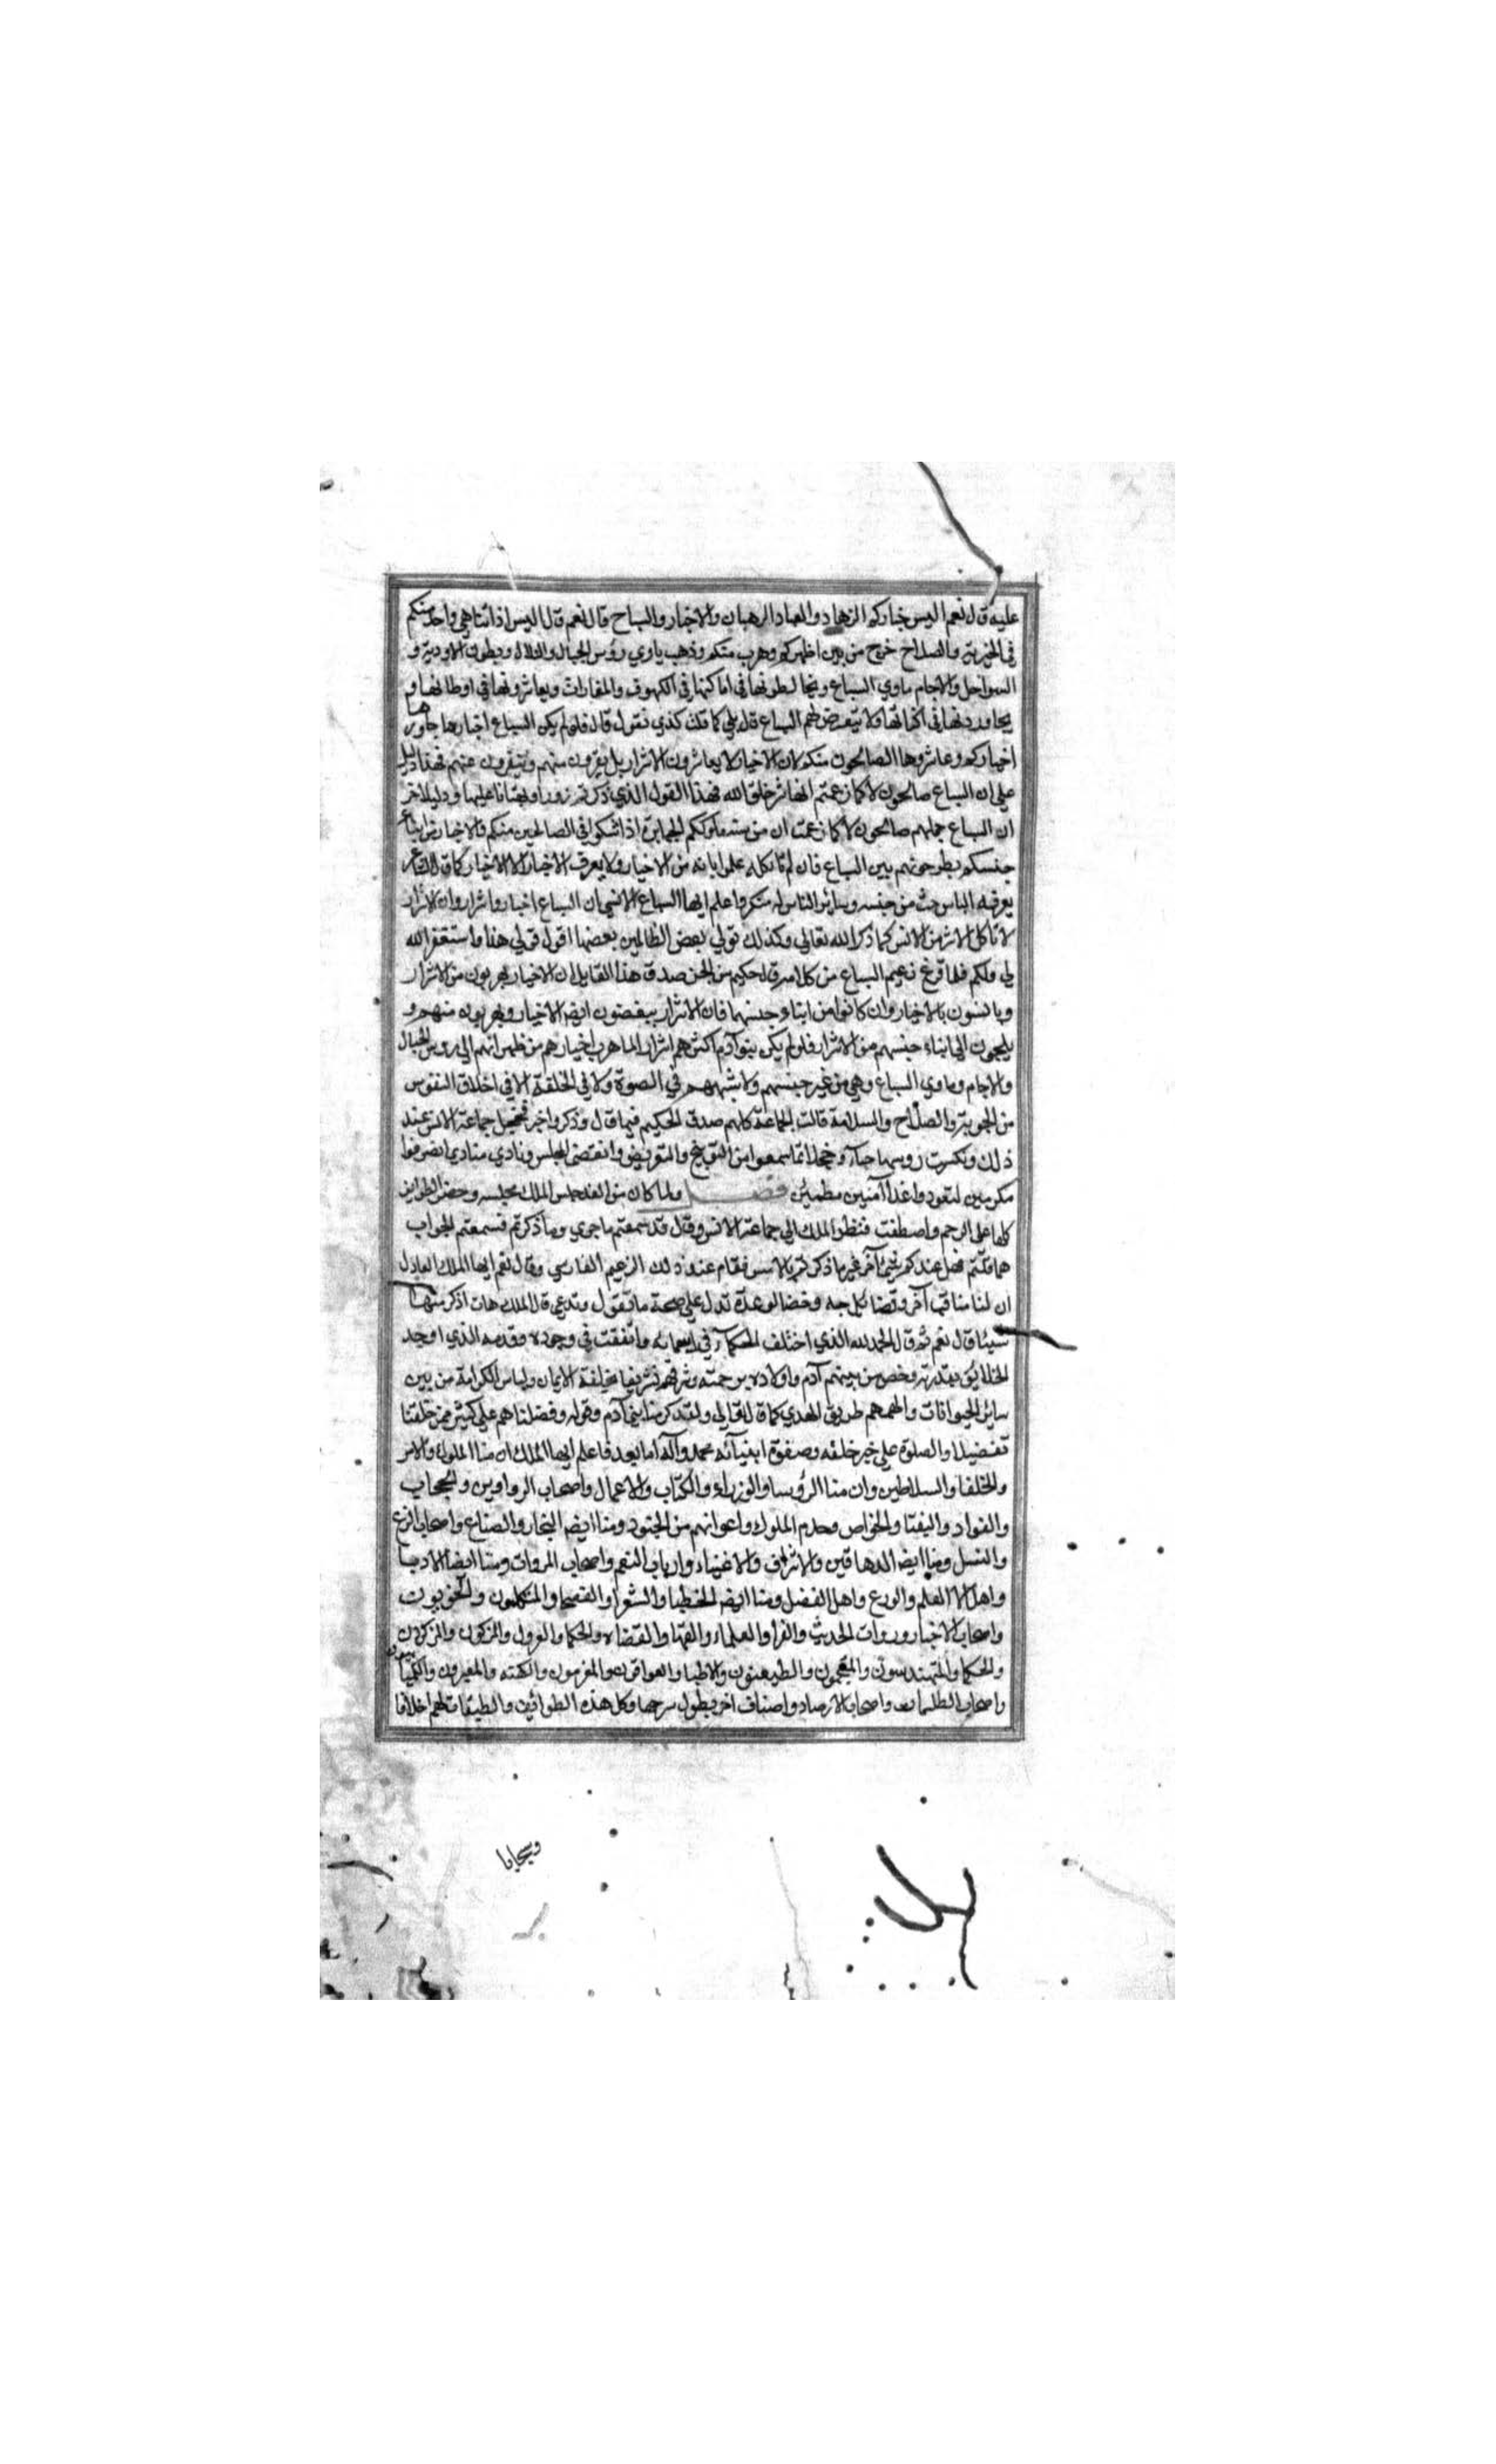 عليه قال نعم اليس خياركم الزهاد والعباد الرهبان والاحبار والسياح قال نعم قال اليس اذا تناهي واحد منكم
في الخيرية والصلاح خرج من بين اظهركم وهرب منكم وذهب ياوي رؤس الجبال والتلال وبطون الاودية و
السواحل والاجام ماوي السباع ويخالطونها في اماكنها في الكهوف والمغارات ويعاشرونها في اوطانها و
يجاورونها في اكنافها ولا يتعرض لهم السباع قال بلي كما قلت كذي نقول قال فلو لم يكن السباع اخيارها جاورها
اخياركم وعاشروها الصالحون منكم لان الاخيار لا يعاشرون الاشرار بل يفرون منهم ويتنفرون عنهم فهذا دليل
علي ان السباع صالحون لا كما زعمتم انها شر خلق الله فهذا القول الذي ذكرتم زورا وبهتانا عليها ودليل اخر
ان السباع جملهم صالحون لا كما زعمت ان من سنة ملوككم الجبابرة اذا شكوا في الصالحين منكم والاخيار من ابناء
جنسكم يطرحونهم بين السباع فان لم تاكله علموا بانه من الاخيار ولا يعرف الاخيار الا الاخيار كما قال الشاعر
يعرفه الباحث من جنسه وسائر الناس له منكر واعلم ايها السباع الانسي ان السباع اخيار واشرار وان الاشرار
لا تاكل الا شر من الانس كما ذكر الله تعالي وكذلك نولي بعض الظالمين بعضا اقول قولي هذا واستغفر الله
لي ولكم فلما فرغ زعيم السباع من كلامه قال حكيم من الجن صدق هذا القايل ان الاخيار يهربون من الاشرار
ويانسون بالاخيار وان كانوا من ابناء جنسهم فان الاشرار يبغضون ايضا الاخيار ويهربون منهم و
يلجون الي ابناء جنسهم من الاشرار فلو لم يكن بنو آدم اكثرهم اشرار لما هرب اخيارهم من ظهرانهم الي روس الجبال
والاجام وماوي السباع وهي من غير جنسهم ولا يشبههم في الصورة ولا في الخلقة الا في اخلاق النفوس
من الجويرية والصلاح والسلامة قالت الجماعة كلهم صدق الحكيم فيما قال وذكر واخبر فخجل جماعة الانس عند
ذلك ونكست روسها حياء وخجلا لما سمعوا من التوبيخ والتعريض وانقضي المجلس ونادي منادي انصرفوا
مكرمين لتعودوا غدا آمنين مطمئن فصل ولما كان من الغد جلس الملك مجلسه وحضر الطوايف
كلها علي الرحم واصطفت فنظر الملك الي جماعة الانس وقال قد سمعتم ما جري وما ذكرتم فسمعتم الجواب
مما قلتم فهل عندكم شئ آخر غير ما ذكرتم بالامس فقام عند ذلك الزعيم الفارسي وقال نعم ايها الملك العادل
ان لنا مناقب آخر وفضائل جمه وخصال عدة تدل علي صحة ما نقول وندعي قال الملك هات اذكر منها
شيئا قال نعم ثم قال الحمد لله الذي اختلف الحكماء في اسمائه واتفقت في وجوده وقدمه الذي اوجد
الخلائق بقدرته وخص من بينهم آدم واولاده برحمته وشرفهم تشريفا بخلقة الايمان ولباس الكرامة من بين
سائر الحيوانات والهمهم طريق الهدي كما قال تعالي ولقد كرمنا بني آدم وقوله وفضلناهم علي كثير ممن خلقنا
تفضيلا والصلوة علي خير خلقه وصفوة انبيآئه محمد وآله اما بعد فاعلم ايها الملك ان منا الملوك والامر
والخلفا والسلاطين وان منا الرؤسا والوزراء والكتاب والاعمال واصحاب الرواوين والحجاب
والقواد والنقبا والخواص وخدم الملوك واعوانهم من الجنود ومنا ايضا التجار والصناع واصحاب الزرع
والنسل ومنا ايضا الدهاقين والاشراف والاغنياء وارباب النعم واصحاب المروات ومنا ايضا الادبا
واهل العلم والورع واهل الفضل ومنا ايضا الخطبا والشعرا والفصحا والمتكلمون والنحويون
واصحاب الاخبار وروات الحديث والقرا والعلماء والفقها والقضاه والحكام والعدول والمزكون والمذكرون
والحكما والمتهندسون والمنجمون والطبيعيون والاطبا والعرافون والمعزمون والكهنه والمعبرون والكيميائيون
واصحاب الطلسمات واصحاب الارصاد واصناف اخر يطول شرحها وكل هذه الطوائف والطبقات لهم اخلاقا
وسجايا